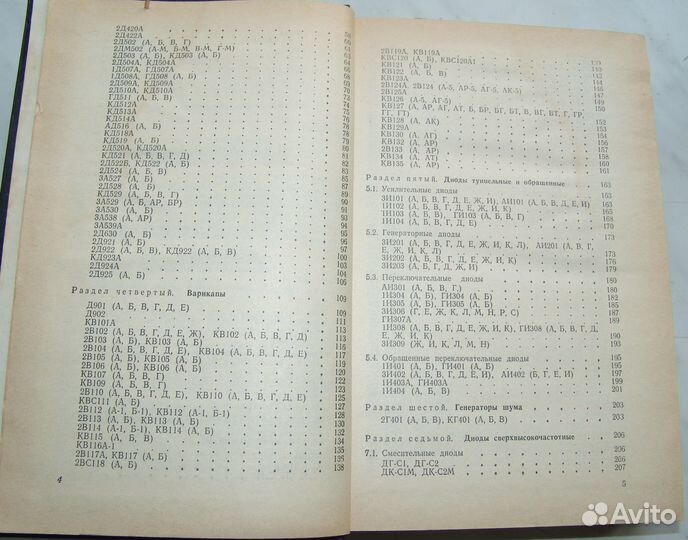 2Д420А
2Д422А 58
2Д502 (А, Б, В, Г) 60
2ДМ502 (А-М, Б-М, В-М, Г-М) 61
2Д503 (А, Б), КД503 (А, Б) 64
2Д504А, КД504А 66
1Д507А, ГД507А 67
1Д508А, ГД508 (А, Б) 68
2Д509А, КД509А 69
2Д510А, КД510А 70
ГД511 (А, Б, В) 71
КД512А 73
КД513А 74
КД514А 75
АД516 (А, Б) 76
КД518А 78
КД519 (А, Б) 79
2Д520А, КД520А 80
КД521 (А, Б, В, Г, Д) 81
2Д522Б, КД522 (А, Б) 83
2Д524 (А, Б, В) 85
3А527 (А, Б) 86
2Д528 (А, Б) 87
КД529 (А, Б, В, Г)
3А529 (А, Б, АР, БР)
3А530 (А, Б)
3А538 (А, АР)
3А539А
2Д630 (А, Б) 95
2Д921 (А, Б) 96
2Д922 (А, Б, В), КД922 (А, Б, В) 97
КД923А
2Д924А
2Д925 (А, Б) 106
Раздел четвертый. Варикапы 109
Д901 (А, Б, В, Г, Д, Е) 109
Д902 111
КВ101А 111
2В102 (А, Б, В, Г, Д, Е, Ж), КВ102 (А, Б, В, Г, Д) 113
2В103 (А, Б), КВ103 (А, Б)
2В104 (А, Б, В, Г, Д, Е), КВ104 (А, Б, В, Г, Д, Е)
2В105 (А, Б), КВ105 (А, Б)
2В106 (А, Б), КВ106 (А, Б)
КВ107 (А, Б, В, Г)
КВ109 (А, Б, В, Г)
2В110 (А, Б, В, Г, Д, Е), КВ110 (А, Б, В, Г, Д, Е)
КВС111 (А, Б)
2В112 (А-1, Б-1), КВ112 (А-1, Б-1)
2В113 (А, Б), КВ113 (А, Б)
2В114 (А-1, Б-1), КВ114 (А, Б)
КВ115 (А, Б, В)
КВ116А-1
2В117А, КВ117 (А, Б) 135
2ВС118 (А, Б) 138
4
2В119А, КВ119А
КВС120 (А, Б), КВС120А1
КВ121 (А, Б)
КВ122 (А, Б, В) 143
КВ123А 144
2В124А, 2В124 (А-5, АР-5, АГ-5, АК-5) 146
2В125А 147
КВ126 (А-5, АГ-5) 149
КВ127 (А, АР, АГ, АТ, Б, БР, БГ, БТ, В, ВГ, БТ, Г, ГР, 150
ГГ, ГТ)
КВ128 (А, АК) 152
КВ129А 153
КВ130 (А, АГ) 154
КВ132 (А, АР) 156
2В133 (А, АР) 157
КВ134 (А, АТ) 158
КВ135 (А, АР) 160
161
Раздел пятый. Диоды туннельные и обращенные 163
5.1. Усилительные диоды 163
3И101 (А, Б, В, Г, Д, Е, Ж, И), АИ101 (А, Б, В, Д, Е, И) 163
1И102 (А, Б, В, Г, Д, Е, Ж, И, К) 165
1И103 (А, Б, В), ГИ103 (А, Б, В, Г) 168
1И104 (А, Б, В, Г, Д, Е)
5.2. Генераторные диоды 173
3И201 (А, Б, В, Г, Д, Е, Ж, И, К, Л), АИ201 (А, В, Г,
Е, Ж, И, К, Л) 173
3И202 (А, Б, В, Г, Д, Е, Ж, И, К) 176
3И203 (А, Б, Г, Д, Ж, И) 179
5.3. Переключательные диоды 180
АИ301 (А, Б, В, Г,) 180
1И304 (А, Б), ГИ304 (А, Б) 182
1И305 (А, Б), ГИ305 (А, Б)
3И306 (Г, Е, Ж, К, Л, М, Н, Р, С)
ГИ307А
1И308 (А, Б, В, Г, Д, Е, Ж, И, К), ГИ308 (А, Б, В, Г, Д,
Е, Ж, И, К) 190
3И309 (Ж, И, К, Л, М, Н) 193
5.4. Обращенные переключательные диоды 195
1И401 (А, Б), ГИ401 (А, Б) 195
3И402 (А, Б, В, Г, Д, Е, И), АИ402 (Б, Г, Е, И) 197
1И403А, ГИ403А 199
1И404 (А, Б, В) 201
Раздел шестой. Генераторы шума 203
2Г401 (А, Б, В), КГ401 (А, Б, В) 203
Раздел седьмой. Диоды сверхвысокочастотные 206
7.1. Смесительные диоды 206
ДГ-С1, ДГ-С2 206
ДК-С1М, ДК-С2М 207
5
Avito